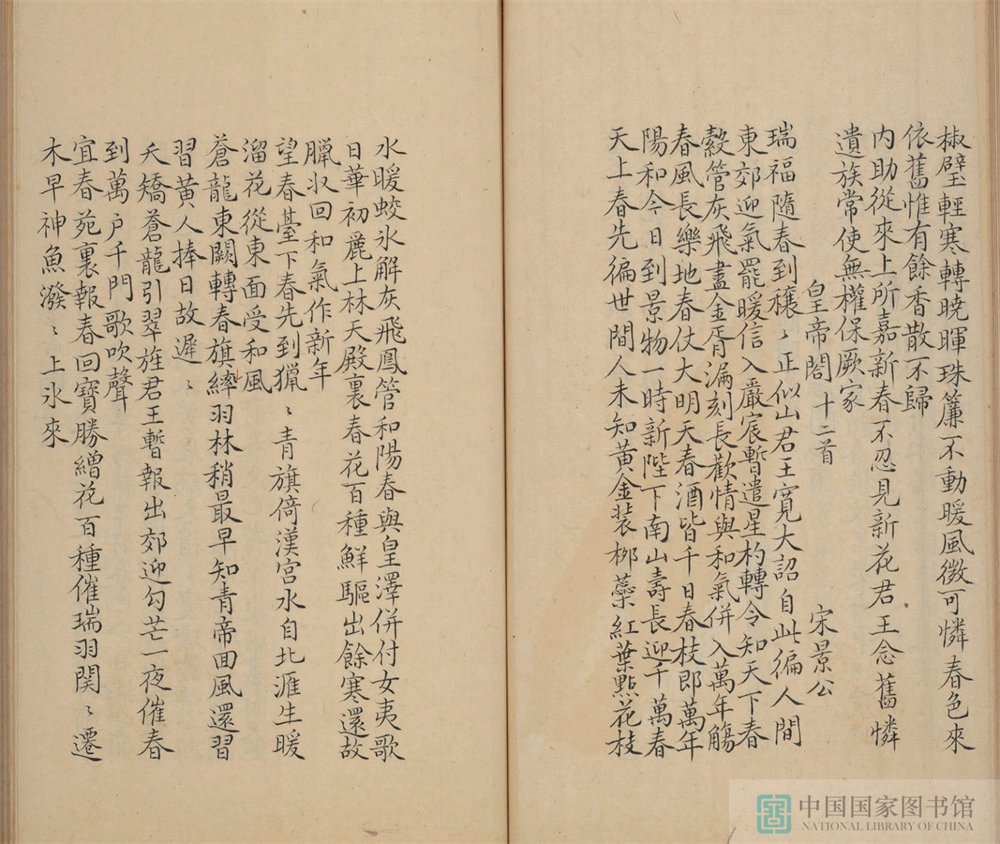 椒壁輕寒轉曉暉珠簾不動暖風微可憐春色來
依舊惟有餘香散不歸
內助從來上所嘉新春不忍見新花君王念舊憐
遺族常使無權保厥家
皇帝閣十二首 宋景公
瑞福隨春到穰〻正似山君王寬大詔自此徧人間
東郊迎氣罷暖信入嚴宸暫遣星杓轉令知天下春
縠管灰飛盡金胥漏刻長歡情與和氣併入萬年觴
春風長樂地春仗大明天春酒皆千日春枝即萬年
陽和今日到景物一時新陛下南山壽長迎千萬春
天上春先徧世間人未知黃金装柳蘂紅葉點花枝
水暖蛟氷解灰飛鳳管和陽春與皇澤併付女夷歌
日華初麗上林天殿裏春花百種鮮驅出餘寒還故
臘收回和氣作新年
望春臺下春先到獵〻青旗倚漢宮水自北涯生暖
溜花從東面受和風
蒼龍東闕轉春旗縡羽林稍最早知青帝回風還習
習黃人捧日故遲〻
夭矯蒼龍引翠旌君王暫報出郊迎勾芒一夜催春
到萬户千門歌吹聲
宜春苑裏報春回寶勝繒花百種催瑞羽関〻遷
木早神魚潑〻上氷來
中国国家图书馆
NATIONAL LIBRARY OF CHINA